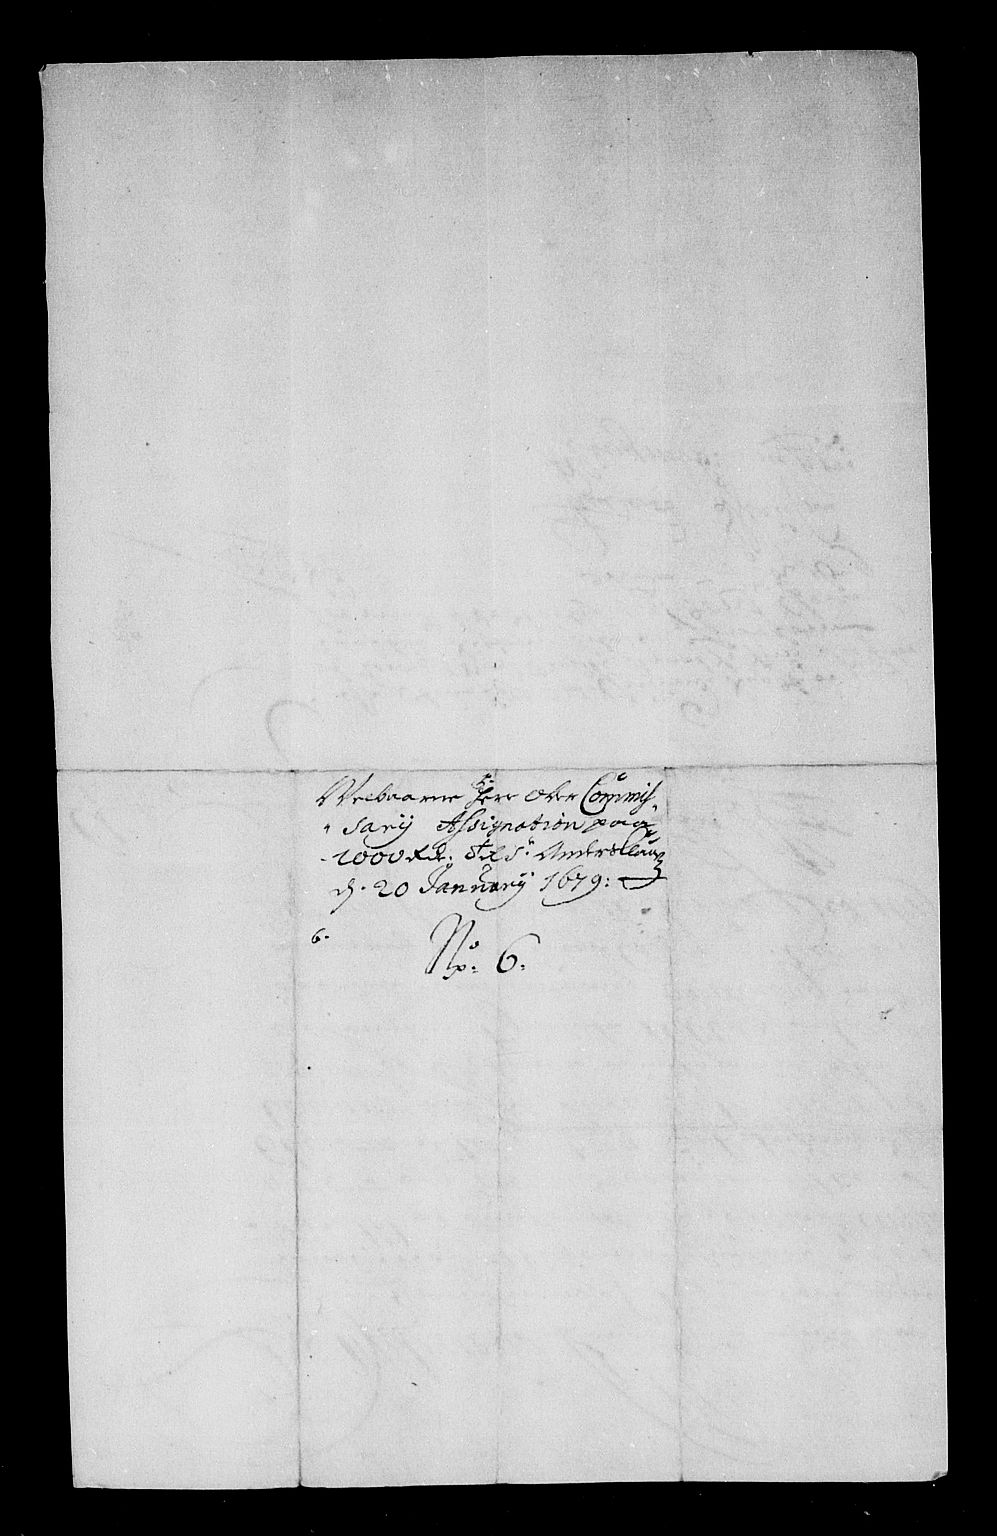 Welbaarne Herr Ober Commis-
sarij Assignation paa
1000 Rd. till Sr. Anders
d. 20 January 1679:
6.
No: 6.